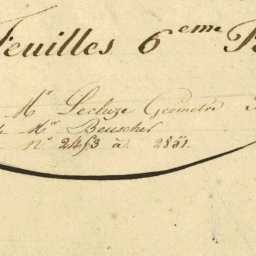 Feuilles 6eme P
Mr Lecluze Géomètre
& Mr Beuscher
No 2453 à 2851